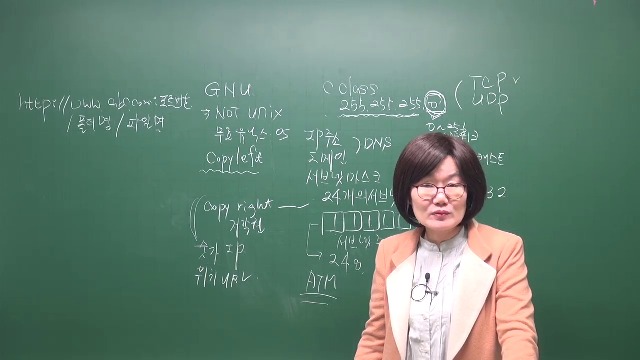 http://www.abs.com:포트번호
/폴더명/파일명
GNU
Not unix
무료유닉스 OS
Copyleft
Copy right
저작권
숫자 IP
위치 URL
C class
255.255.255.
(TCP
UDP
IP주소
도메인
) DNS
서브넷마스크
24개의 서브넷
1 1 1 1
24
ATM
32